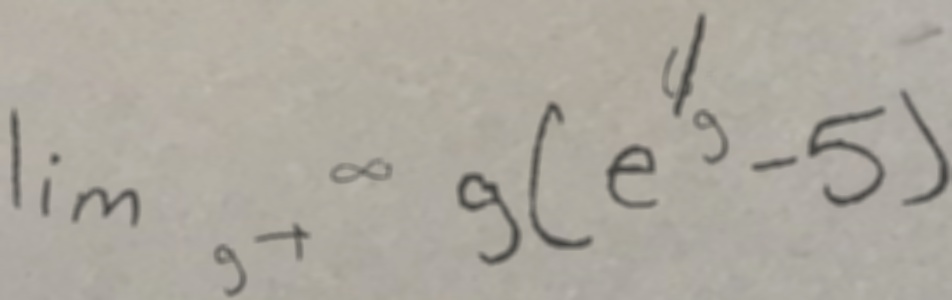 lim g→∞ g(e^1/g - 5)